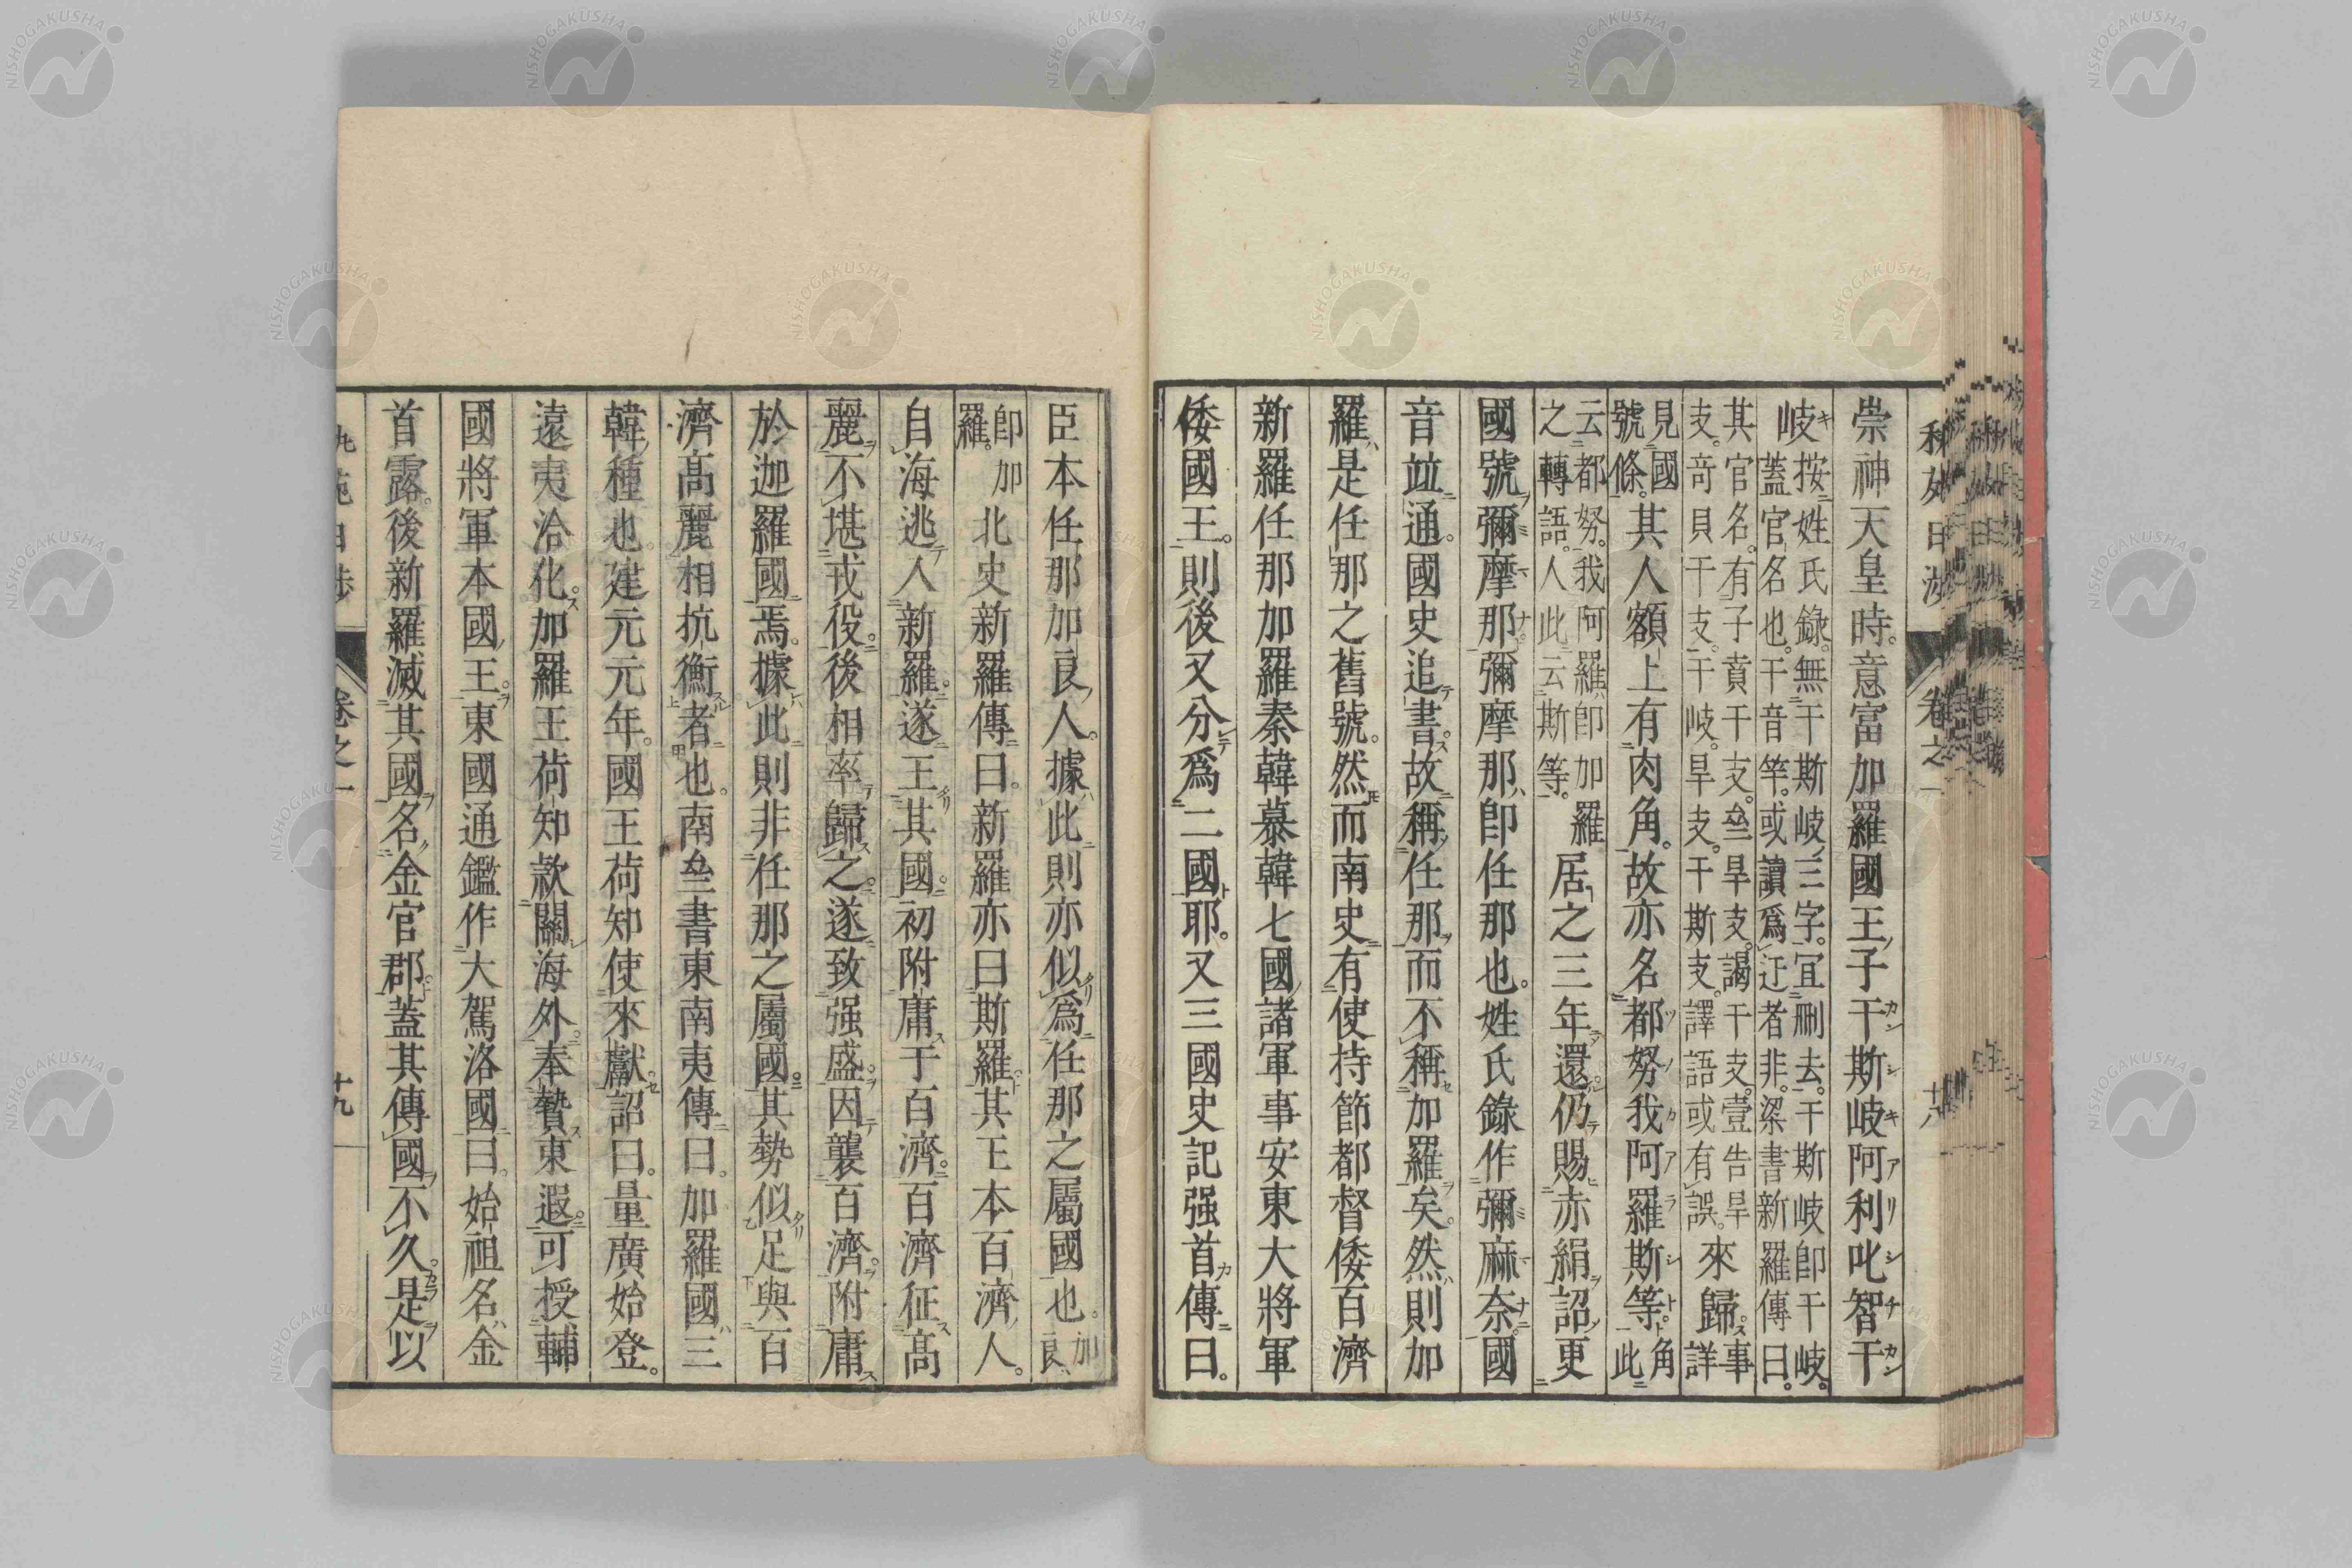 崇神天皇時。意富加羅國王子干斯岐阿利叱智干
岐 按姓氏錄。無干斯岐三字。宜刪去。干斯岐卽干岐。
蓋官名也。干音竿。或讀爲迂者非。梁書新羅傳曰。
其官名。有子賁干支。壹旱支。謁干支。壹告旱
支。奇貝干支。干岐。旱支。干斯支。譯語或有誤。來歸。事詳
見國號條。其人額上有肉角。故亦名都努我阿羅斯等。角此
云都努。我阿羅卽加羅
之轉語。人此云斯等。居之三年還。仍賜赤絹。詔更
國號彌摩那。彌摩那卽任那也。姓氏錄作彌麻奈。國
音竝通。國史追書。故稱任那。而不稱加羅矣。然則加
羅是任那之舊號。然而南史有使持節都督倭百濟
新羅任那加羅秦韓慕韓七國諸軍事安東大將軍
倭國王。則後又分爲二國耶。又三國史記强首傳曰。
卷之一
十八
臣本任那加良人。據此則亦似爲任那之屬國也。加良
卽加羅。北史新羅傳曰。新羅亦曰斯羅。其王本百濟人。
自海逃人新羅。遂王其國。初附庸于百濟。百濟征高
麗。不堪戎役。後相率歸之。遂致强盛。因襲百濟。附庸
於迦羅國焉。據此則非任那之屬國。其勢似足與百
濟高麗相抗衡者也。南坙書東南夷傳曰。加羅國三
韓種也。建元元年。國王荷知使來獻。詔曰。量廣始登。
遠夷洽化。加羅王荷知款關海外。奉贄東遐。可授輔
國將軍本國王。東國通鑑作大駕洛國曰。始祖名金
首露。後新羅滅其國。名金官郡。蓋其傳國不久。是以
卷之一
十九
NISHOGAKUSHA